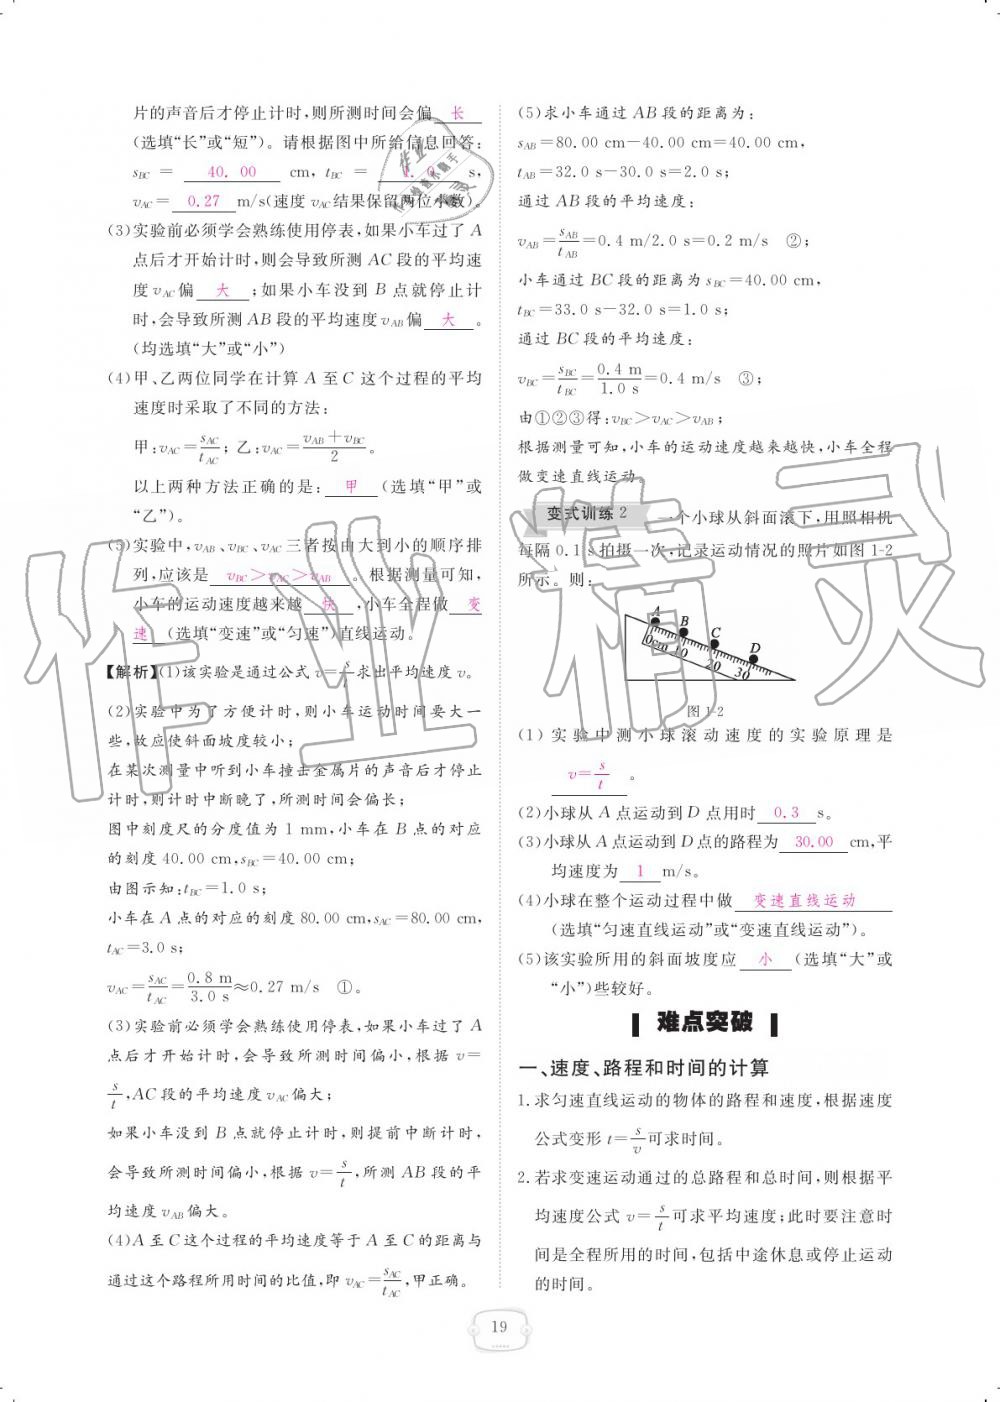 片的声音后才停止计时,则所测时间会偏 长
(选填“长”或“短”)。请根据图中所给信息回答:
sBC = 40.00 cm, tBC = 1.0 s,
vAC= 0.27 m/s(速度 vAC结果保留两位小数)。
(3)实验前必须学会熟练使用停表,如果小车过了 A
点后才开始计时,则会导致所测 AC 段的平均速
度 vAC偏 大 ;如果小车没到 B 点就停止计
时,会导致所测 AB 段的平均速度 vAB偏 大 。
(均选填“大”或“小”)
(4)甲、乙两位同学在计算 A 至 C 这个过程的平均
速度时采取了不同的方法:
甲:vAC=sAC/tAC; 乙:vAC=(vAB+vBC)/2。
以上两种方法正确的是: 甲 (选填“甲”或
“乙”)。
(5)实验中,vAB、vBC、vAC三者按由大到小的顺序排
列,应该是 vBC>vAC>vAB 。根据测量可知,
小车的运动速度越来越 快 ,小车全程做 变
速 (选填“变速”或“匀速”)直线运动。
【解析】(1)该实验是通过公式 v=s/t求出平均速度 v。
(2)实验中为了方便计时,则小车运动时间要大一
些,故应使斜面坡度较小;
在某次测量中听到小车撞击金属片的声音后才停止
计时,则计时中断晚了,所测时间会偏长;
图中刻度尺的分度值为 1 mm,小车在 B 点的对应
的刻度 40.00 cm,sBC=40.00 cm;
由图示知:tBC=1.0 s;
小车在 A 点的对应的刻度 80.00 cm,sAC=80.00 cm,
tAC=3.0 s;
vAC=sAC/tAC=0.8 m/3.0 s≈0.27 m/s ①。
(3)实验前必须学会熟练使用停表,如果小车过了 A
点后才开始计时,会导致所测时间偏小,根据 v=
s/t,AC 段的平均速度 vAC偏大;
如果小车没到 B 点就停止计时,则提前中断计时,
会导致所测时间偏小,根据 v=s/t,所测 AB 段的平
均速度 vAB偏大。
(4)A 至 C 这个过程的平均速度等于 A 至 C 的距离与
通过这个路程所用时间的比值,即 vAC=sAC/tAC,甲正确。
(5)求小车通过 AB 段的距离为:
sAB=80.00 cm−40.00 cm=40.00 cm,
tAB=32.0 s−30.0 s=2.0 s;
通过 AB 段的平均速度:
vAB=sAB/tAB=0.4 m/2.0 s=0.2 m/s ②;
小车通过 BC 段的距离为 sBC=40.00 cm,
tBC=33.0 s−32.0 s=1.0 s;
通过 BC 段的平均速度:
vBC=sBC/tBC=0.4 m/1.0 s=0.4 m/s ③;
由①②③得:vBC>vAC>vAB;
根据测量可知,小车的运动速度越来越快,小车全程
做变速直线运动。
变式训练 2 一个小球从斜面滚下,用照相机
每隔 0.1 s拍摄一次,记录运动情况的照片如图 1-2
所示。则:
A B C D
0cm 10 20 30
图 1-2
(1)实验中测小球滚动速度的实验原理是
v=s/t 。
(2)小球从 A 点运动到 D 点用时 0.3 s。
(3)小球从 A 点运动到 D 点的路程为 30.00 cm,平
均速度为 1 m/s。
(4)小球在整个运动过程中做 变速直线运动
(选填“匀速直线运动”或“变速直线运动”)。
(5)该实验所用的斜面坡度应 小 (选填“大”或
“小”)些较好。
难点突破
一、速度、路程和时间的计算
1.求匀速直线运动的物体的路程和速度,根据速度
公式变形 t=s/v可求时间。
2.若求变速运动通过的总路程和总时间,则根据平
均速度公式 v=s/t可求平均速度;此时要注意时
间是全程所用的时间,包括中途休息或停止运动
的时间。
19
作业精灵